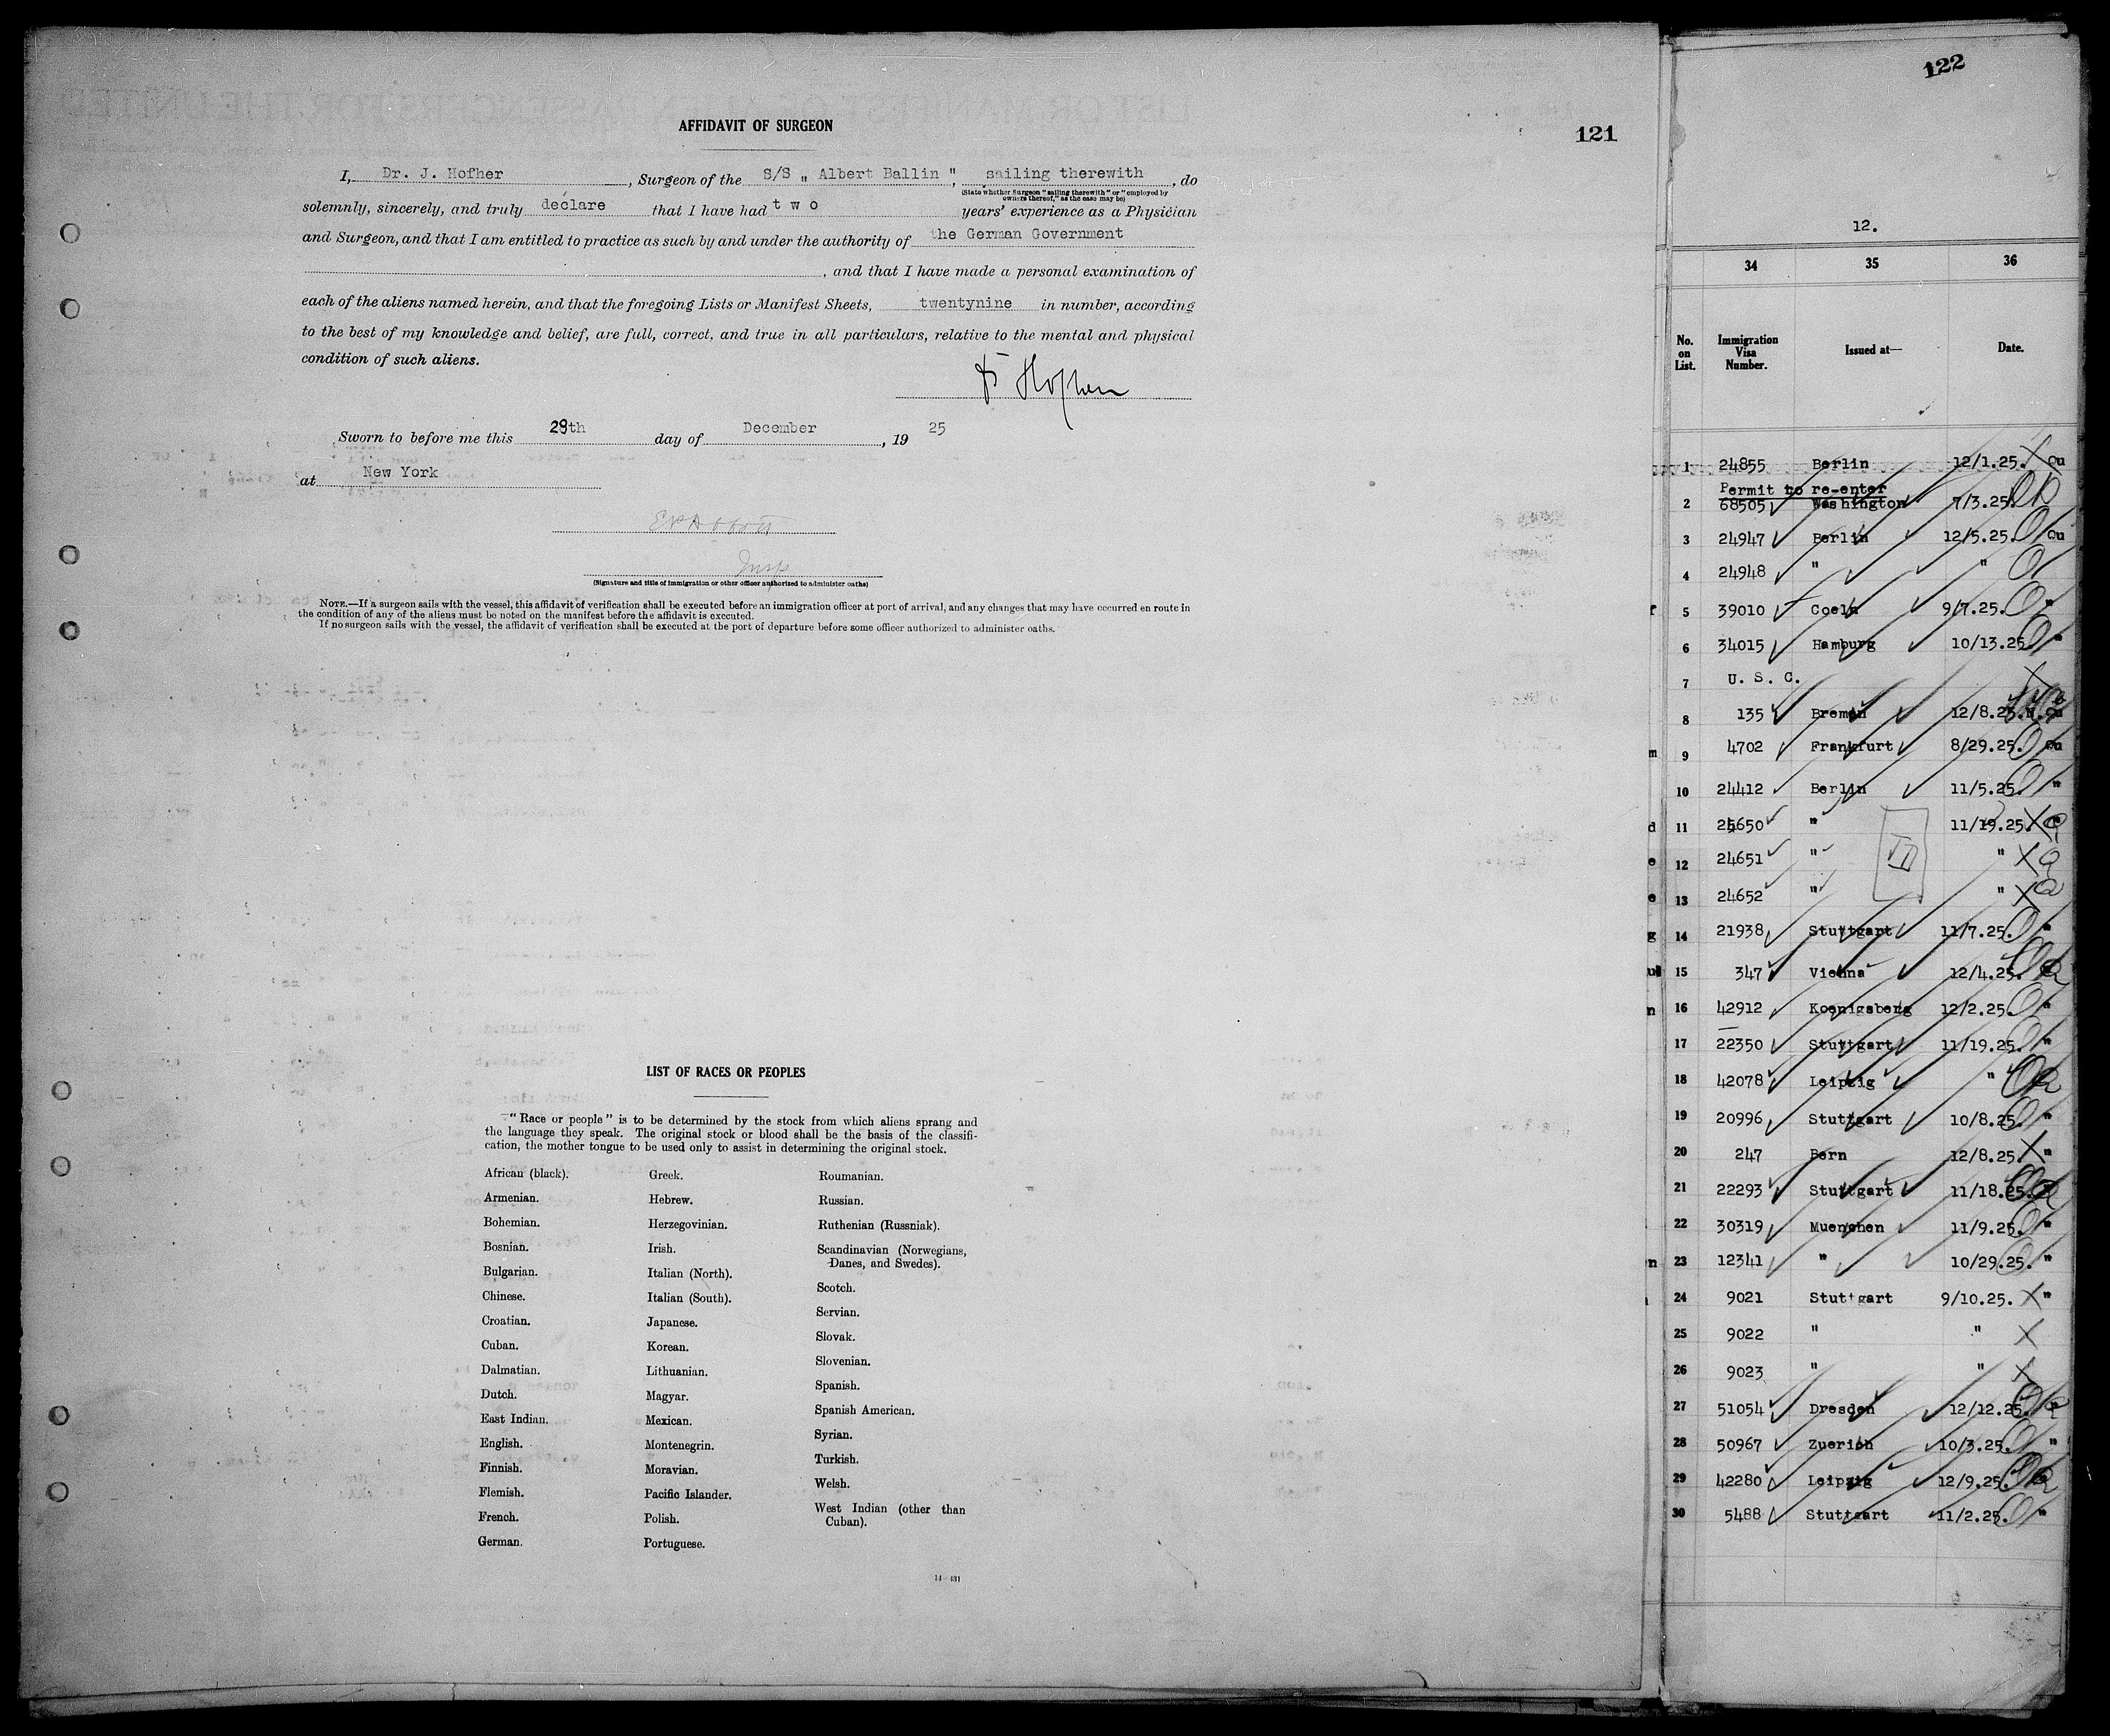 AFFIDAVIT OF SURGEON
121
I, Dr. J. Hofher, Surgeon of the S/S " Albert Ballin ", sailing therewith, do
(State whether Surgeon "sailing therewith" or "employed by
owners thereof," as the case may be)
solemnly, sincerely, and truly declare that I have had two years' experience as a Physician
and Surgeon, and that I am entitled to practice as such by and under the authority of the German Government
, and that I have made a personal examination of
each of the aliens named herein, and that the foregoing Lists or Manifest Sheets, twentynine in number, according
to the best of my knowledge and belief, are full, correct, and true in all particulars, relative to the mental and physical
condition of such aliens.
Hofher
Sworn to before me this 29th day of December, 19 25
at New York
Insp
(Signature and title of immigration or other officer authorized to administer oaths)
NOTE.—If a surgeon sails with the vessel, this affidavit of verification shall be executed before an immigration officer at port of arrival, and any changes that may have occurred en route in
the condition of any of the aliens must be noted on the manifest before the affidavit is executed.
If no surgeon sails with the vessel, the affidavit of verification shall be executed at the port of departure before some officer authorized to administer oaths.
LIST OF RACES OR PEOPLES
"Race or people" is to be determined by the stock from which aliens sprang and
the language they speak. The original stock or blood shall be the basis of the classifi-
cation, the mother tongue to be used only to assist in determining the original stock.
African (black).
Armenian.
Bohemian.
Bosnian.
Bulgarian.
Chinese.
Croatian.
Cuban.
Dalmatian.
Dutch.
East Indian.
English.
Finnish.
Flemish.
French.
German.
Greek.
Hebrew.
Herzegovinian.
Irish.
Italian (North).
Italian (South).
Japanese.
Korean.
Lithuanian.
Magyar.
Mexican.
Montenegrin.
Moravian.
Pacific Islander.
Polish.
Portuguese.
Roumanian.
Russian.
Ruthenian (Russniak).
Scandinavian (Norwegians,
Danes, and Swedes).
Scotch.
Servian.
Slovak.
Slovenian.
Spanish.
Spanish American.
Syrian.
Turkish.
Welsh.
West Indian (other than
Cuban).
14—431
122
12.
34 35 36
No. on List. Immigration Visa Number. Issued at— Date.
1 24855 Berlin 12/1.25. Qu
Permit to re-enter
2 68505 Washington 7/3.25.
3 24947 Berlin 12/5.25. Qu
4 24948 " "
5 39010 Coeln 9/7.25. "
6 34015 Hamburg 10/13.25 "
7 U. S. C.
8 135 Bremen 12/8.25.
9 4702 Frankfurt 8/29.25. Qu
10 24412 Berlin 11/5.25. "
11 24650 " 11/19.25.
12 24651 " "
13 24652 " "
14 21938 Stuttgart 11/7.25. "
15 347 Vienna 12/4.25.
16 42912 Koenigsberg 12/2.25. "
17 22350 Stuttgart 11/19.25. "
18 42078 Leipzig "
19 20996 Stuttgart 10/8.25. "
20 247 Bern 12/8.25. "
21 22293 Stuttgart 11/18.25.
22 30319 Muenchen 11/9.25. "
23 12341 " 10/29.25. "
24 9021 Stuttgart 9/10.25. "
25 9022 " "
26 9023 " "
27 51054 Dresden 12/12.25.
28 50967 Zuerich 10/3.25. "
29 42280 Leipzig 12/9.25.
30 5488 Stuttgart 11/2.25. "